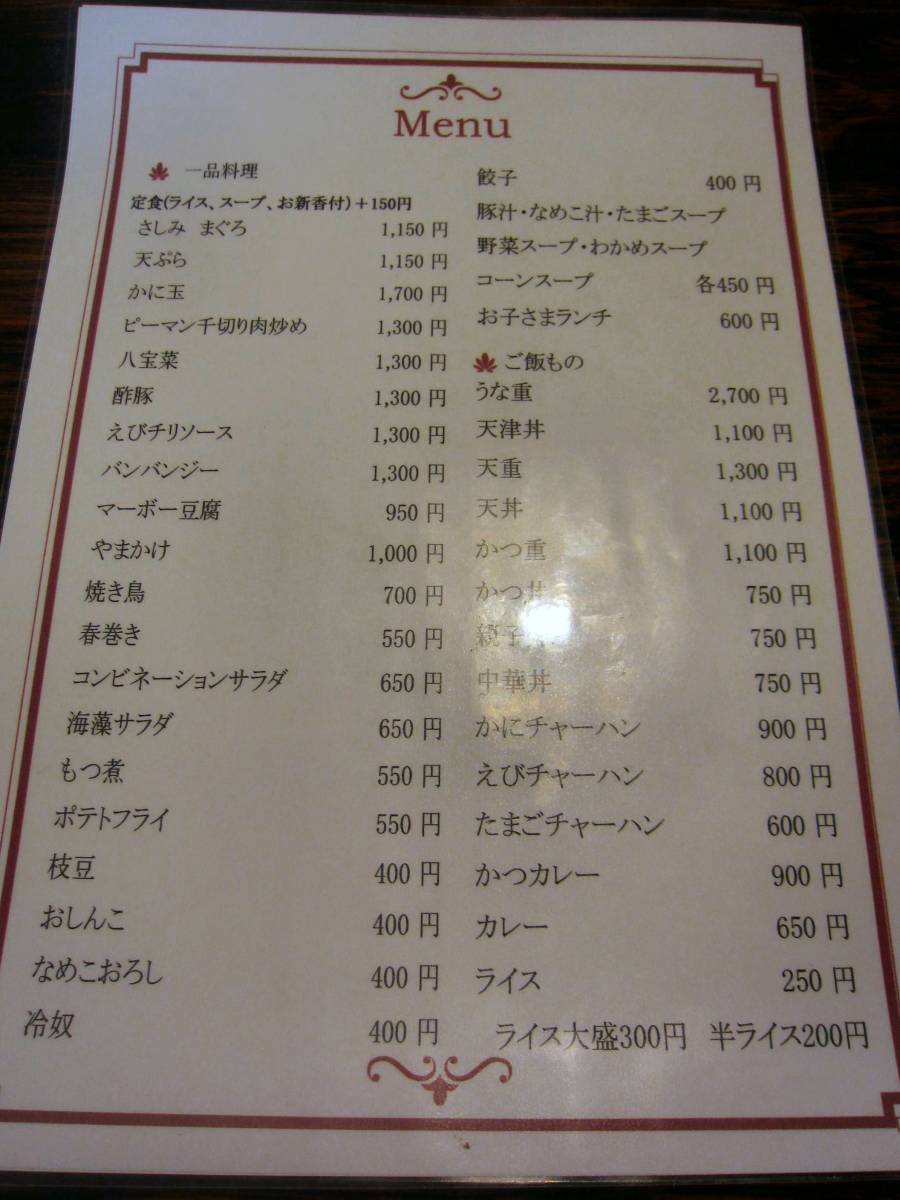 Menu
一品料理
定食(ライス、スープ、お新香付)+150円
さしみ まぐろ 1,150 円
天ぷら 1,150 円
かに玉 1,700 円
ピーマン千切り肉炒め 1,300 円
八宝菜 1,300 円
酢豚 1,300 円
えびチリソース 1,300 円
バンバンジー 1,300 円
マーボー豆腐 950 円
やまかけ 1,000 円
焼き鳥 700 円
春巻き 550 円
コンビネーションサラダ 650 円
海藻サラダ 650 円
もつ煮 550 円
ポテトフライ 550 円
枝豆 400 円
おしんこ 400 円
なめこおろし 400 円
冷奴 400 円
餃子 400 円
豚汁・なめこ汁・たまごスープ
野菜スープ・わかめスープ
コーンスープ 各450 円
お子さまランチ 600 円
ご飯もの
うな重 2,700 円
天津丼 1,100 円
天重 1,300 円
天丼 1,100 円
かつ重 1,100 円
かつ丼 750 円
親子 750 円
中華丼 750 円
かにチャーハン 900 円
えびチャーハン 800 円
たまごチャーハン 600 円
かつカレー 900 円
カレー 650 円
ライス 250 円
ライス大盛300円 半ライス200円